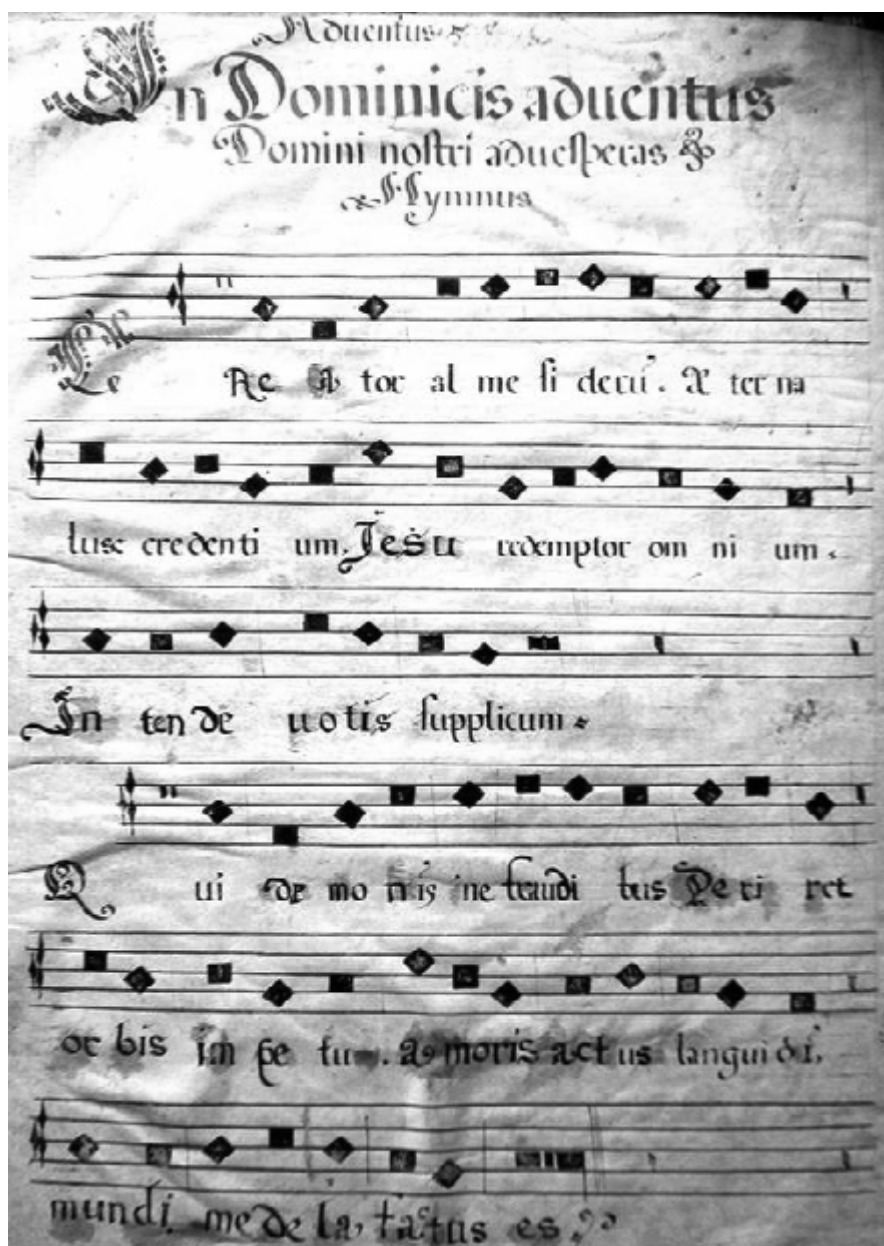 Aduentus
In Dominicis aduentus
Domini nostri aduesperas
Hymnus
Re a tor al me si deru. Æ ter na
luxe credenti um. Jesu redemptor om ni um.
In ten de uotis supplicum
Qui de mo nis ine fraudi bus Pe ri ret
or bis im pe tu. a moris act us langui di.
mundi me de la, factus es